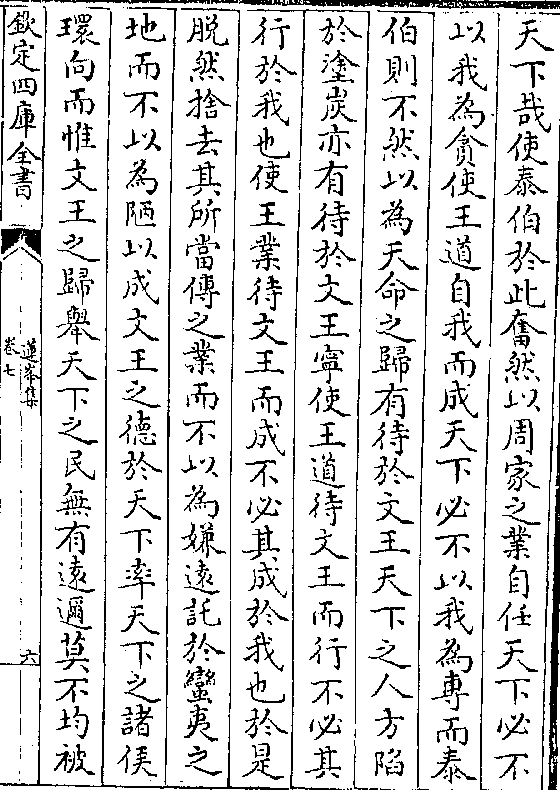 天下哉使泰伯於此奮然以周家之業自任天下必不
以我為貪使王道自我而成天下必不以我為專而泰
伯則不然以為天命之歸有待於文王天下之人方陷
於塗炭亦有待於文王寧使王道待文王而行不必其
行於我也使王業待文王而成不必其成於我也於是
脱然捨去其所當傳之業而不以為嫌逺託於蠻夷之
地而不以為陋以成文王之德於天下率天下之諸侯
環向而惟文王之歸舉天下之民無有逺邇莫不均被
欽定四庫全書
蓮峯集
卷七
六